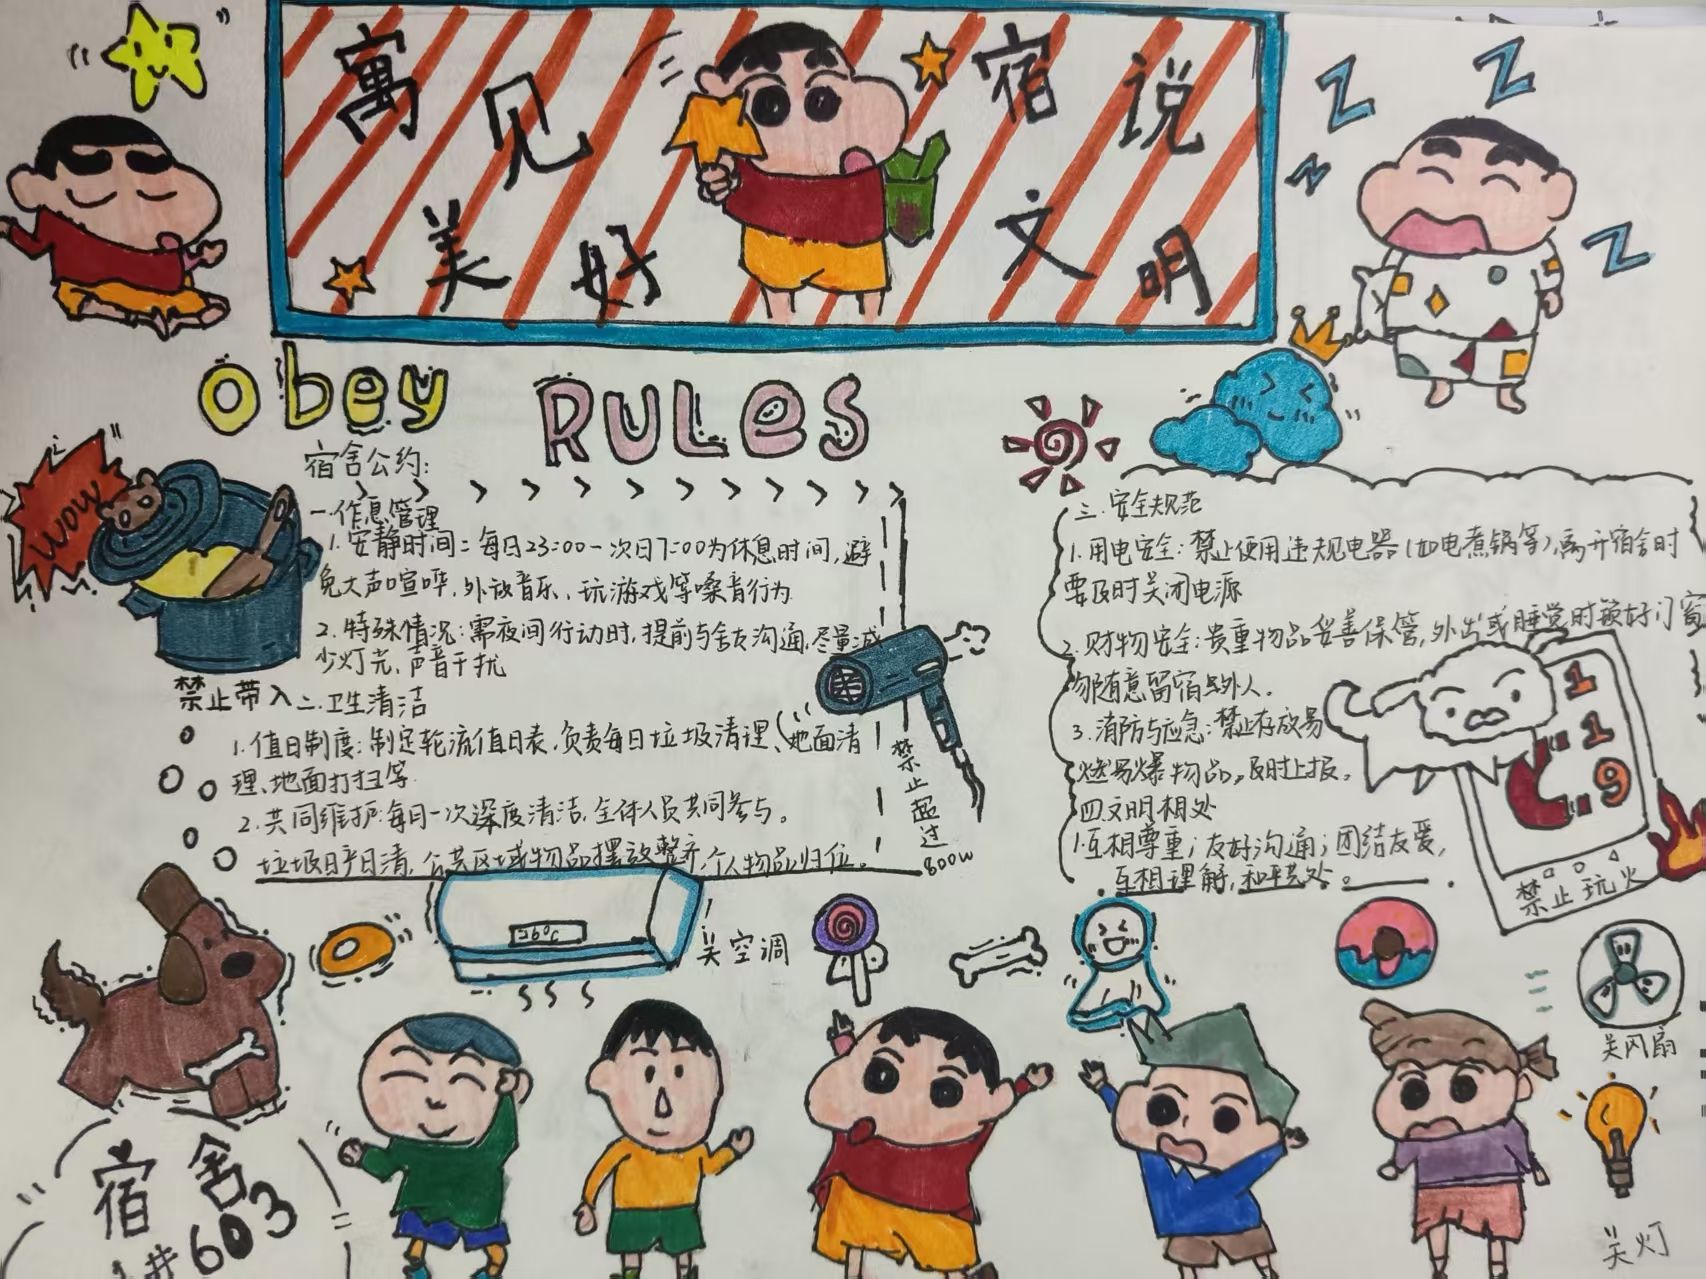 寓见 宿说
美好 文明
Obey RULes
宿舍公约:
一.作息管理
1. 安静时间:每日23:00一次日7:00为休息时间,避
免大声喧哗,外放音乐、玩游戏等噪音行为
2. 特殊情况:需夜间行动时,提前与舍友沟通,尽量减
少灯光,声音干扰
WOW
禁止带入
二.卫生清洁
1.值日制度:制定轮流值日表,负责每日垃圾清理、地面清
理、地面打扫等
2.共同维护:每月一次深度清洁,全体人员共同参与。
垃圾日产日清,公共区域物品摆放整齐,个人物品归位。
禁止超过
800w
三.安全规范
1.用电安全:禁止使用违规电器(如电煮锅等),离开宿舍时
要及时关闭电源
2.财物安全:贵重物品妥善保管,外出或睡觉时锁好门窗
勿随意留宿外人。
3.消防与应急:禁止存放易
燃易爆物品,及时上报。
四文明相处
1.互相尊重;友好沟通;团结友爱,
互相理解,和平共处。
119
禁止玩火
26°C
关空调
关风扇
关灯
宿舍
603
Z Z Z Z